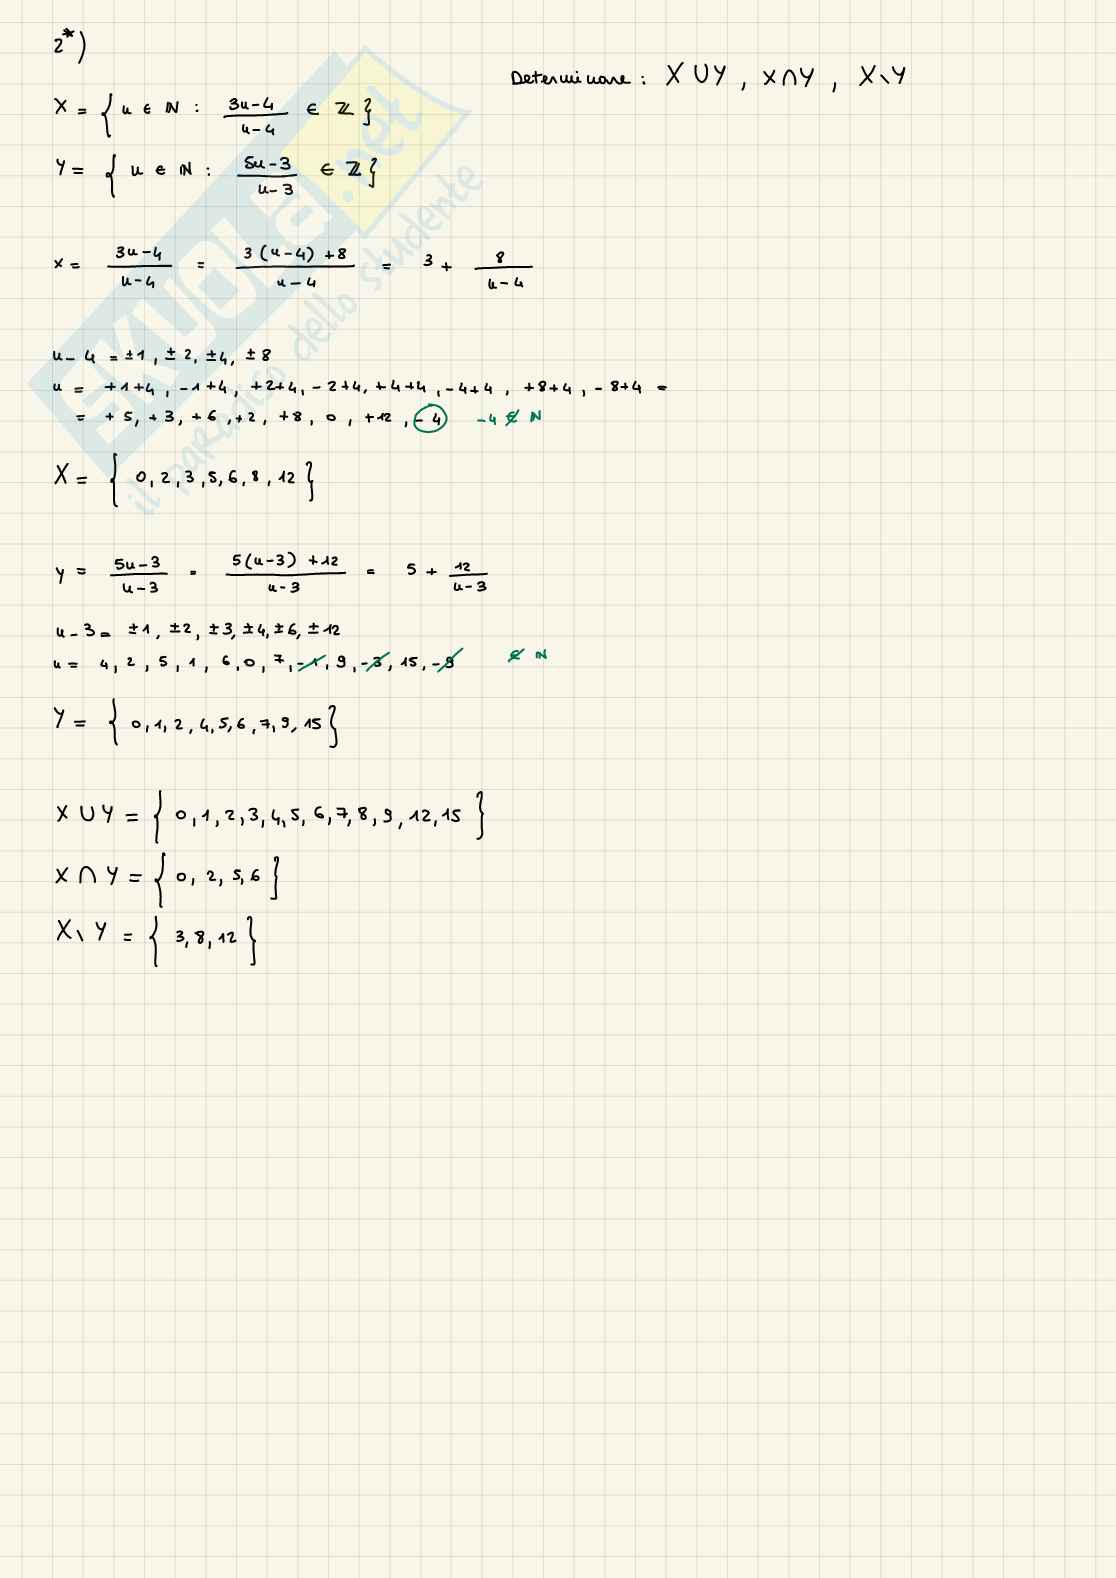 2*)
Determinare: X ∪ Y, X ∩ Y, X \ Y
X = { n ∈ ℕ : (3n-4)/(n-4) ∈ ℤ }
Y = { n ∈ ℕ : (5n-3)/(n-3) ∈ ℤ }
x = (3n-4)/(n-4) = (3(n-4)+8)/(n-4) = 3 + 8/(n-4)
n-4 = ±1, ±2, ±4, ±8
n = +1+4, -1+4, +2+4, -2+4, +4+4, -4+4, +8+4, -8+4 =
= +5, +3, +6, +2, +8, 0, +12, -4 -4 ∉ ℕ
X = { 0, 2, 3, 5, 6, 8, 12 }
y = (5n-3)/(n-3) = (5(n-3)+12)/(n-3) = 5 + 12/(n-3)
n-3 = ±1, ±2, ±3, ±4, ±6, ±12
n = 4, 2, 5, 1, 6, 0, 7, -1, 9, -3, 15, -9 ∉ ℕ
Y = { 0, 1, 2, 4, 5, 6, 7, 9, 15 }
X ∪ Y = { 0, 1, 2, 3, 4, 5, 6, 7, 8, 9, 12, 15 }
X ∩ Y = { 0, 2, 5, 6 }
X \ Y = { 3, 8, 12 }
SKUOLA.net
il paradiso dello studente